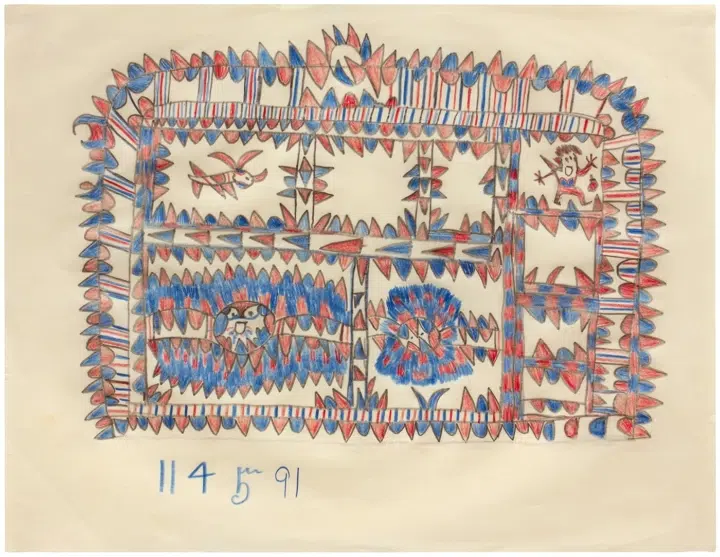 114 5 91